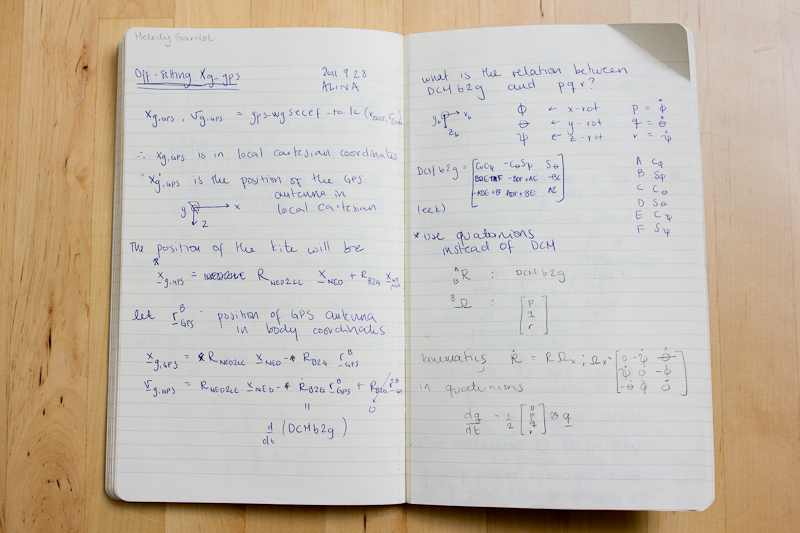 Melody Gardot
Off-setting Xg-gps
2011.9.28
ALINA
xg,GPS, vg,GPS = gps-wgsecef-to-lc(
∴ xg,GPS is in local cartesian coordinates
xg,GPS is the position of the GPS
antenna in
local cartesian
y x
z
The position of the kite will be
xg,GPS = RNED2LC xNED + RB2G
let rGPS^B : position of GPS antenna
in body coordinates
xg,GPS = RNED2LC xNED - RB2G rGPS^B
vg,GPS = RNED2LC xNED - ṘB2G rGPS^B + RB2G ṙGPS^B
॥ 0
d/dt (DCMb2g)
what is the relation between
DCMb2g and pqr?
yb xb ϕ ← x-rot p = ϕ̇
zb θ ← y-rot q = θ̇
ψ ← z-rot r = ψ̇
DCMb2g = [CθCψ -CθSψ Sθ
BDE+AF -BDF+AE -BC
-ADE+BF ADF+BE AC]
(eek)
A Cϕ
B Sϕ
C Cθ
D Sθ
E Cψ
F Sψ
* use quaternions
instead of DCM
A B R : DCMb2g
B Ω : [p
q
r]
kinematics Ṙ = RΩx ; Ωx = [0 -ψ̇ θ̇
ψ̇ 0 -ϕ̇
-θ̇ ϕ̇ 0]
in quaternions
dq/dt = 1/2 [0 p q r] ⊗ q